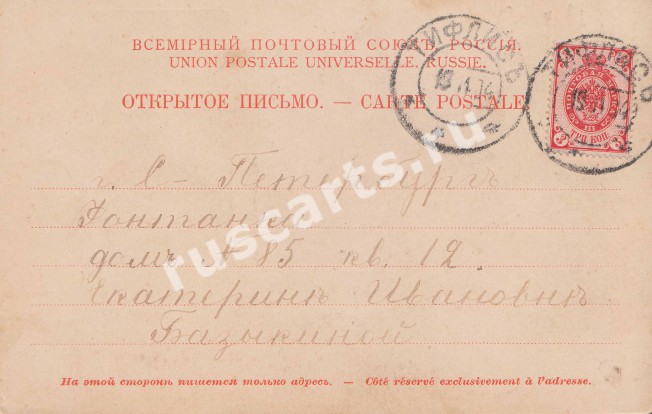 ВСЕМІРНЫЙ ПОЧТОВЫЙ СОЮЗЪ. РОССІЯ.
UNION POSTALE UNIVERSELLE. RUSSIE.
ОТКРЫТОЕ ПИСЬМО. — CARTE POSTALE
ТИФЛИСЪ
ТИФЛИСЪ
ТРИ КОП.
3 3
г. С-Петербургъ
Фонтанка
домъ № 85 кв. 12.
Екатеринѣ Ивановнѣ
Базыкиной
На этой сторонѣ пишется только адресъ. — Côté réservé exclusivement à l'adresse.
ruscarts.ru